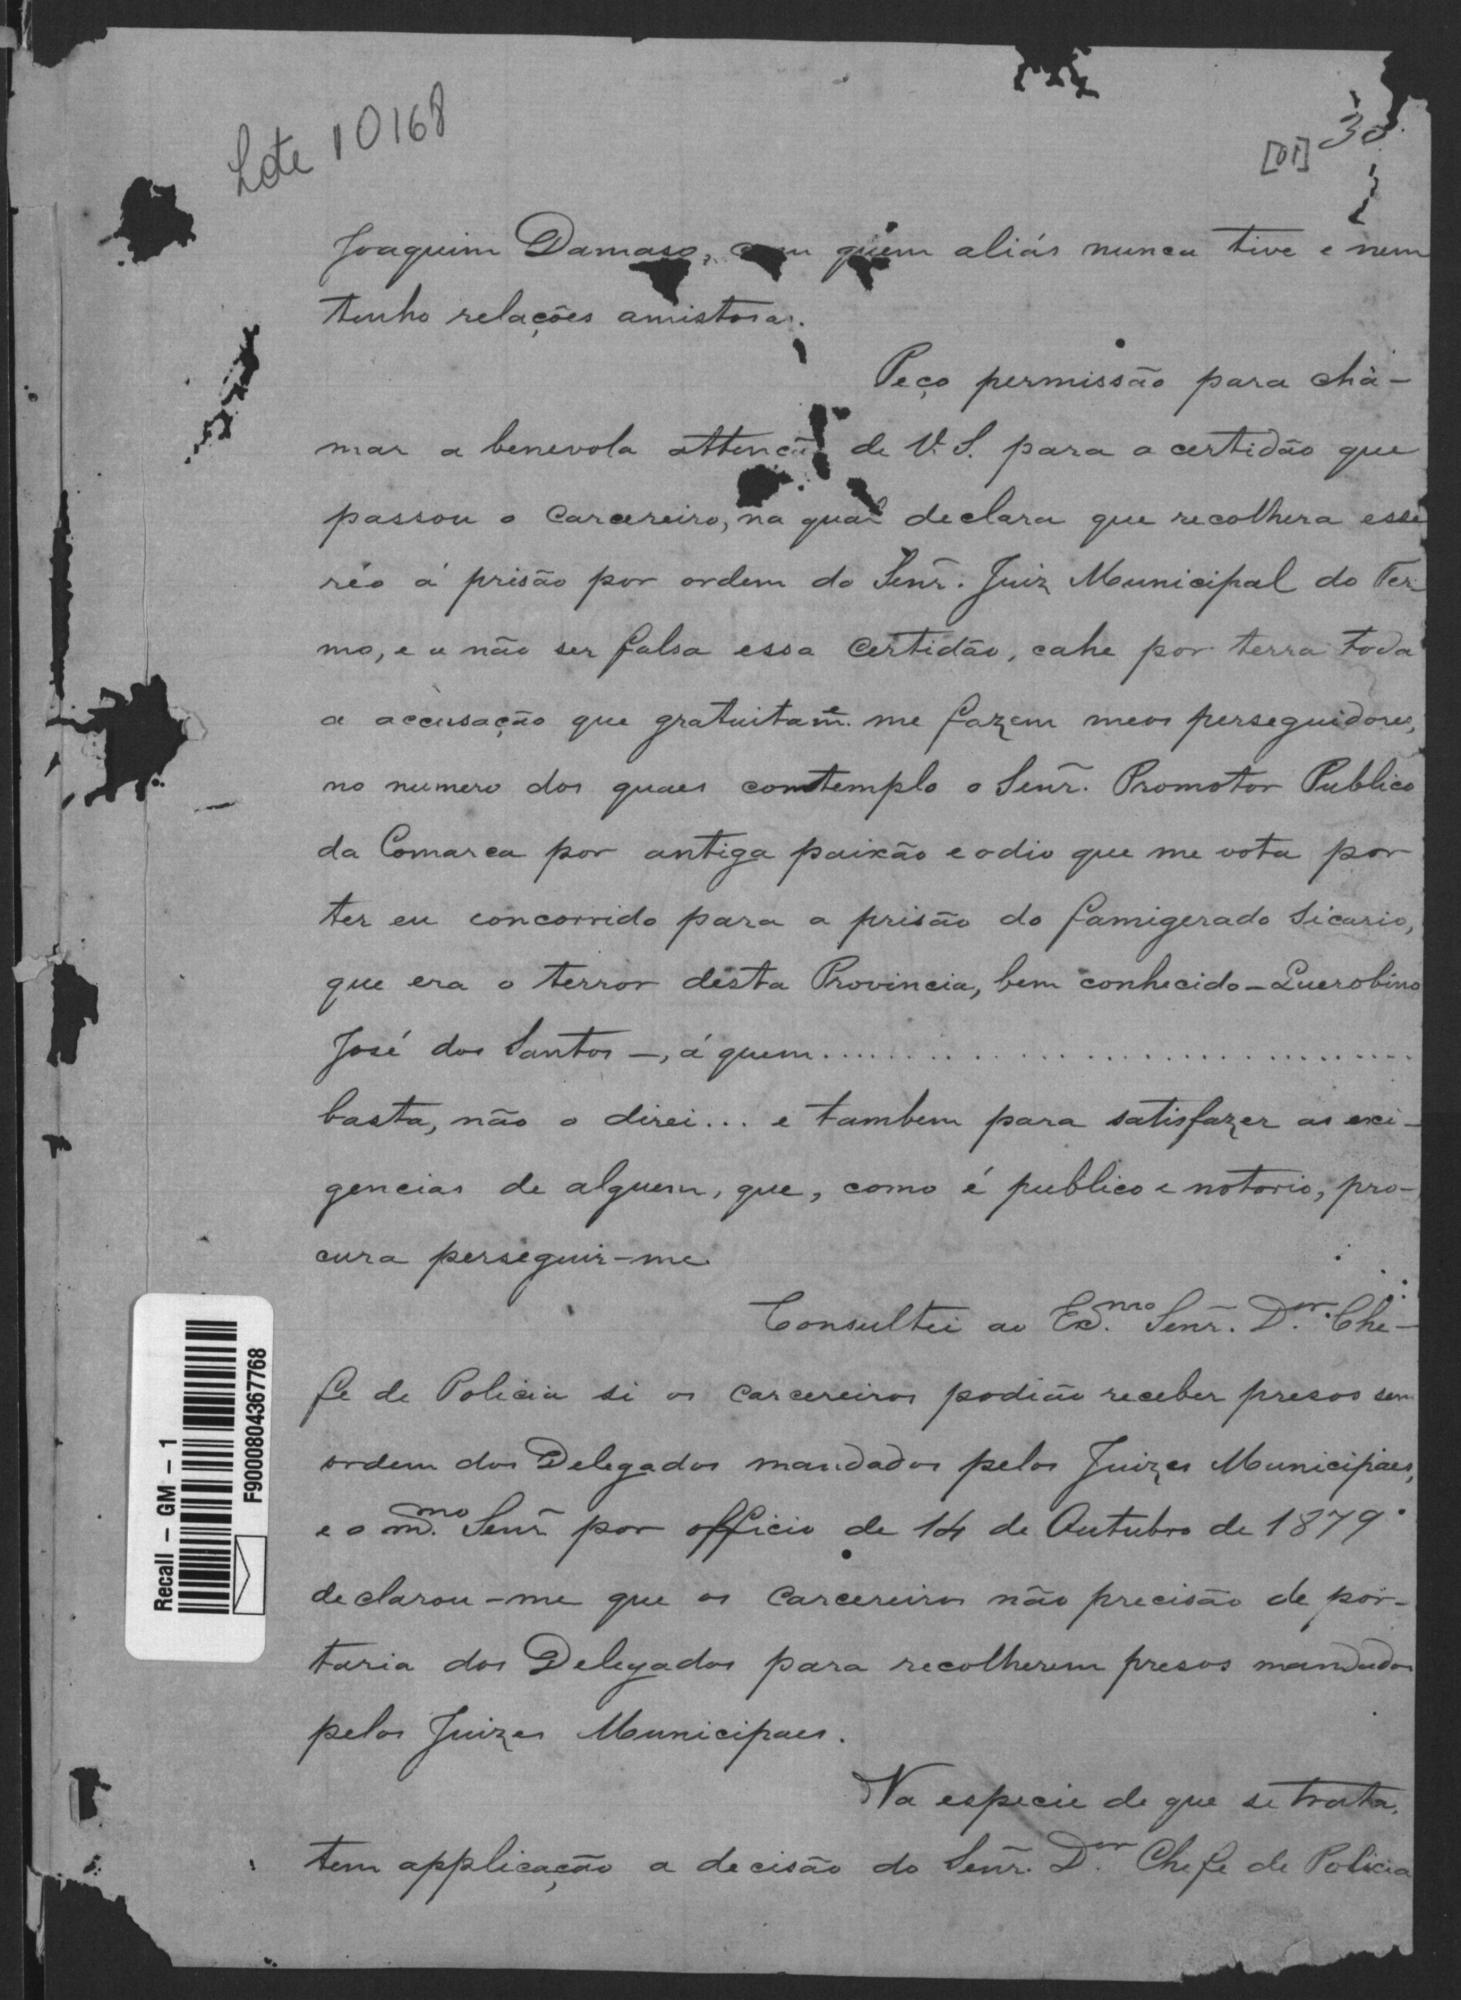 Lote 10168
[01] 30
Joaquim Damaso, com quem aliás nunca tive e nem
tenho relações amistosas.
Peço permissão para cha-
mar a benevola attenção de V. S. para a certidão que
passou o Carcereiro, na qual declara que recolhera esse
réo á prisão por ordem do Senr. Juiz Municipal do Ter-
mo, e a não ser falsa essa Certidão, cahe por terra toda
a accusação que gratuitame. me fazem meos perseguidores,
no numero dos quaes comtemplo o Senr. Promotor Publico
da Comarca por antiga paixão e odio que me vota por
ter eu concorrido para a prisão do famigerado Sicario,
que era o terror desta Provincia, bem conhecido - Querobino
José dos Santos -, á quem..............................
basta, não o direi... e tambem para satisfazer as exi-
gencias de alguem, que, como é publico e notorio, pro-
cura perseguir-me.
Consultei ao Ex.mo Senr. D.or Che-
fe de Policia si os carcereiros podião receber presos sem
ordem dos Delegados mandados pelos Juizes Municipaes,
e o m.mo Senr por officio de 14 de Outubro de 1879
declarou-me que os Carcereiros não precisão de por-
taria dos Delegados para recolherem presos mandados
pelos Juizes Municipaes.
Na especie de que se trata,
tem applicação a decisão do Senr. D.or Chefe de Policia
Recall - GM - 1
F9000804367768